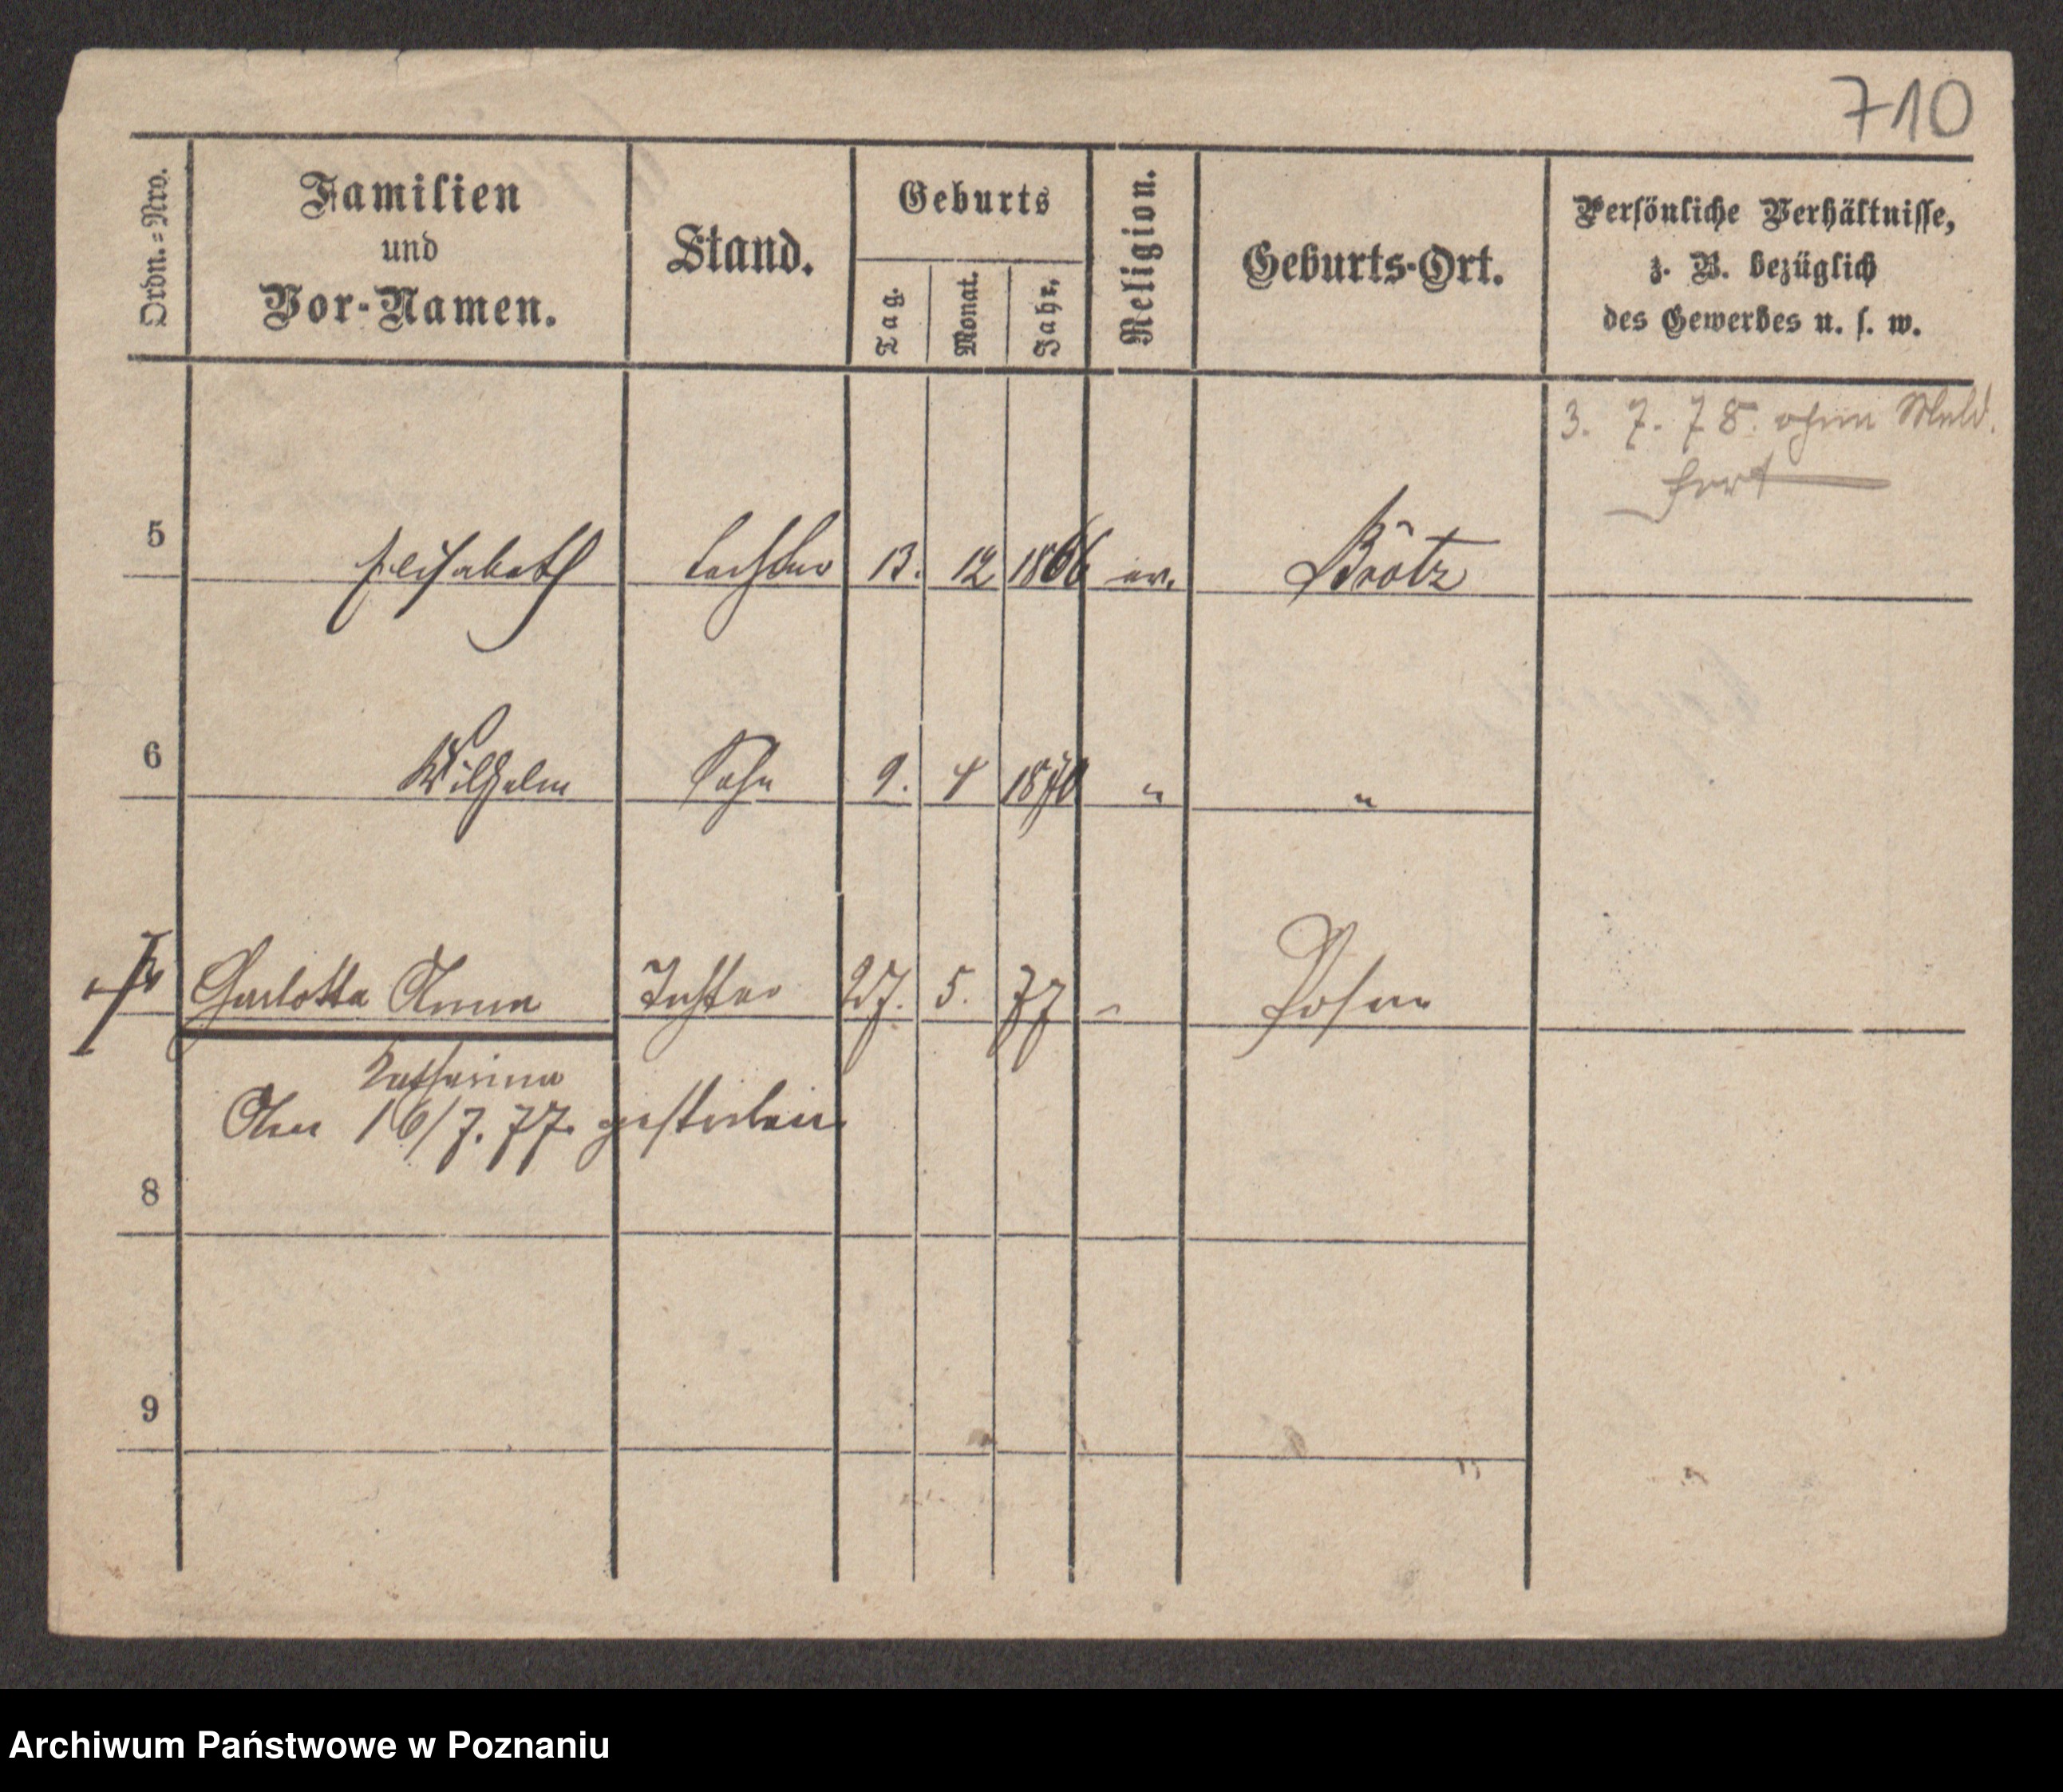 710
Ordn.=Nro.
Familien
und
Vor-Namen.
Stand.
Geburts
Tag.
Monat.
Jahr.
Religion.
Geburts-Ort.
Persönliche Verhältnisse,
z. B. bezüglich
des Gewerbes u. s. w.
3. 7. 78. ohne Meld.
fort
5 Elisabeth Tochter 13. 12 1866 ev. Brätz
6 Wilhelm Sohn 9. 4 1870 " "
Charlotta Anna Tochter 27. 5. 77 Posen
Katharina
Am 16/7. 77. gestorben
8
9
Archiwum Państwowe w Poznaniu